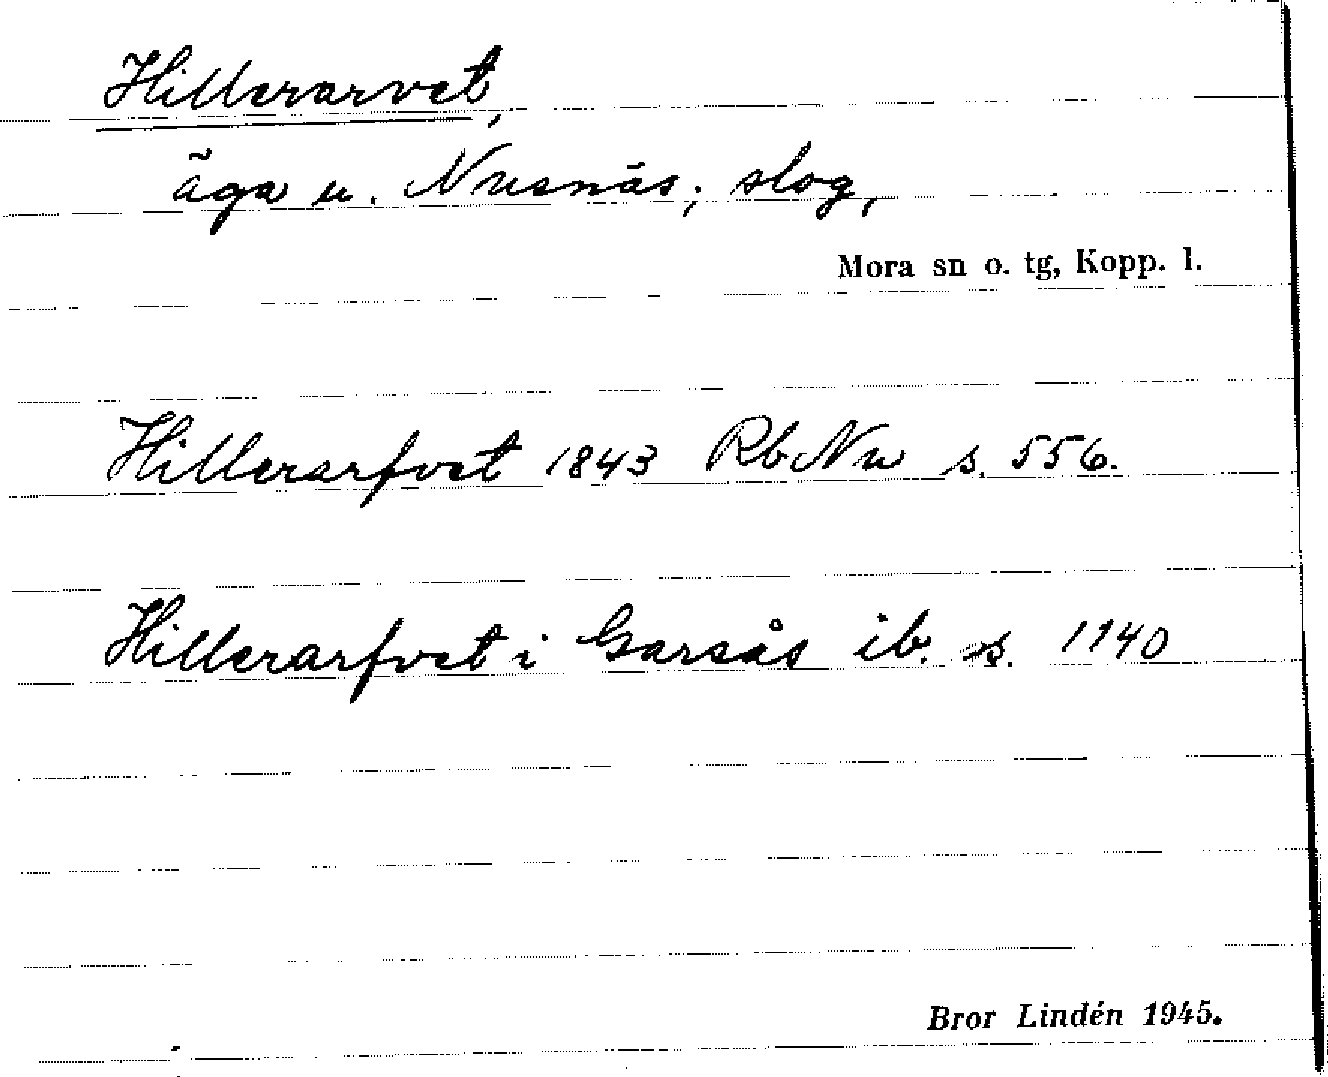 Hillerarvet,
äga u. Nusnäs; slog,
Mora sn o. tg, Kopp. l.
Hillerarfvet 1843 Rb Nu s. 556.
Hillerarfvet i Garsås ib. s. 1140
Bror Lindén 1945.